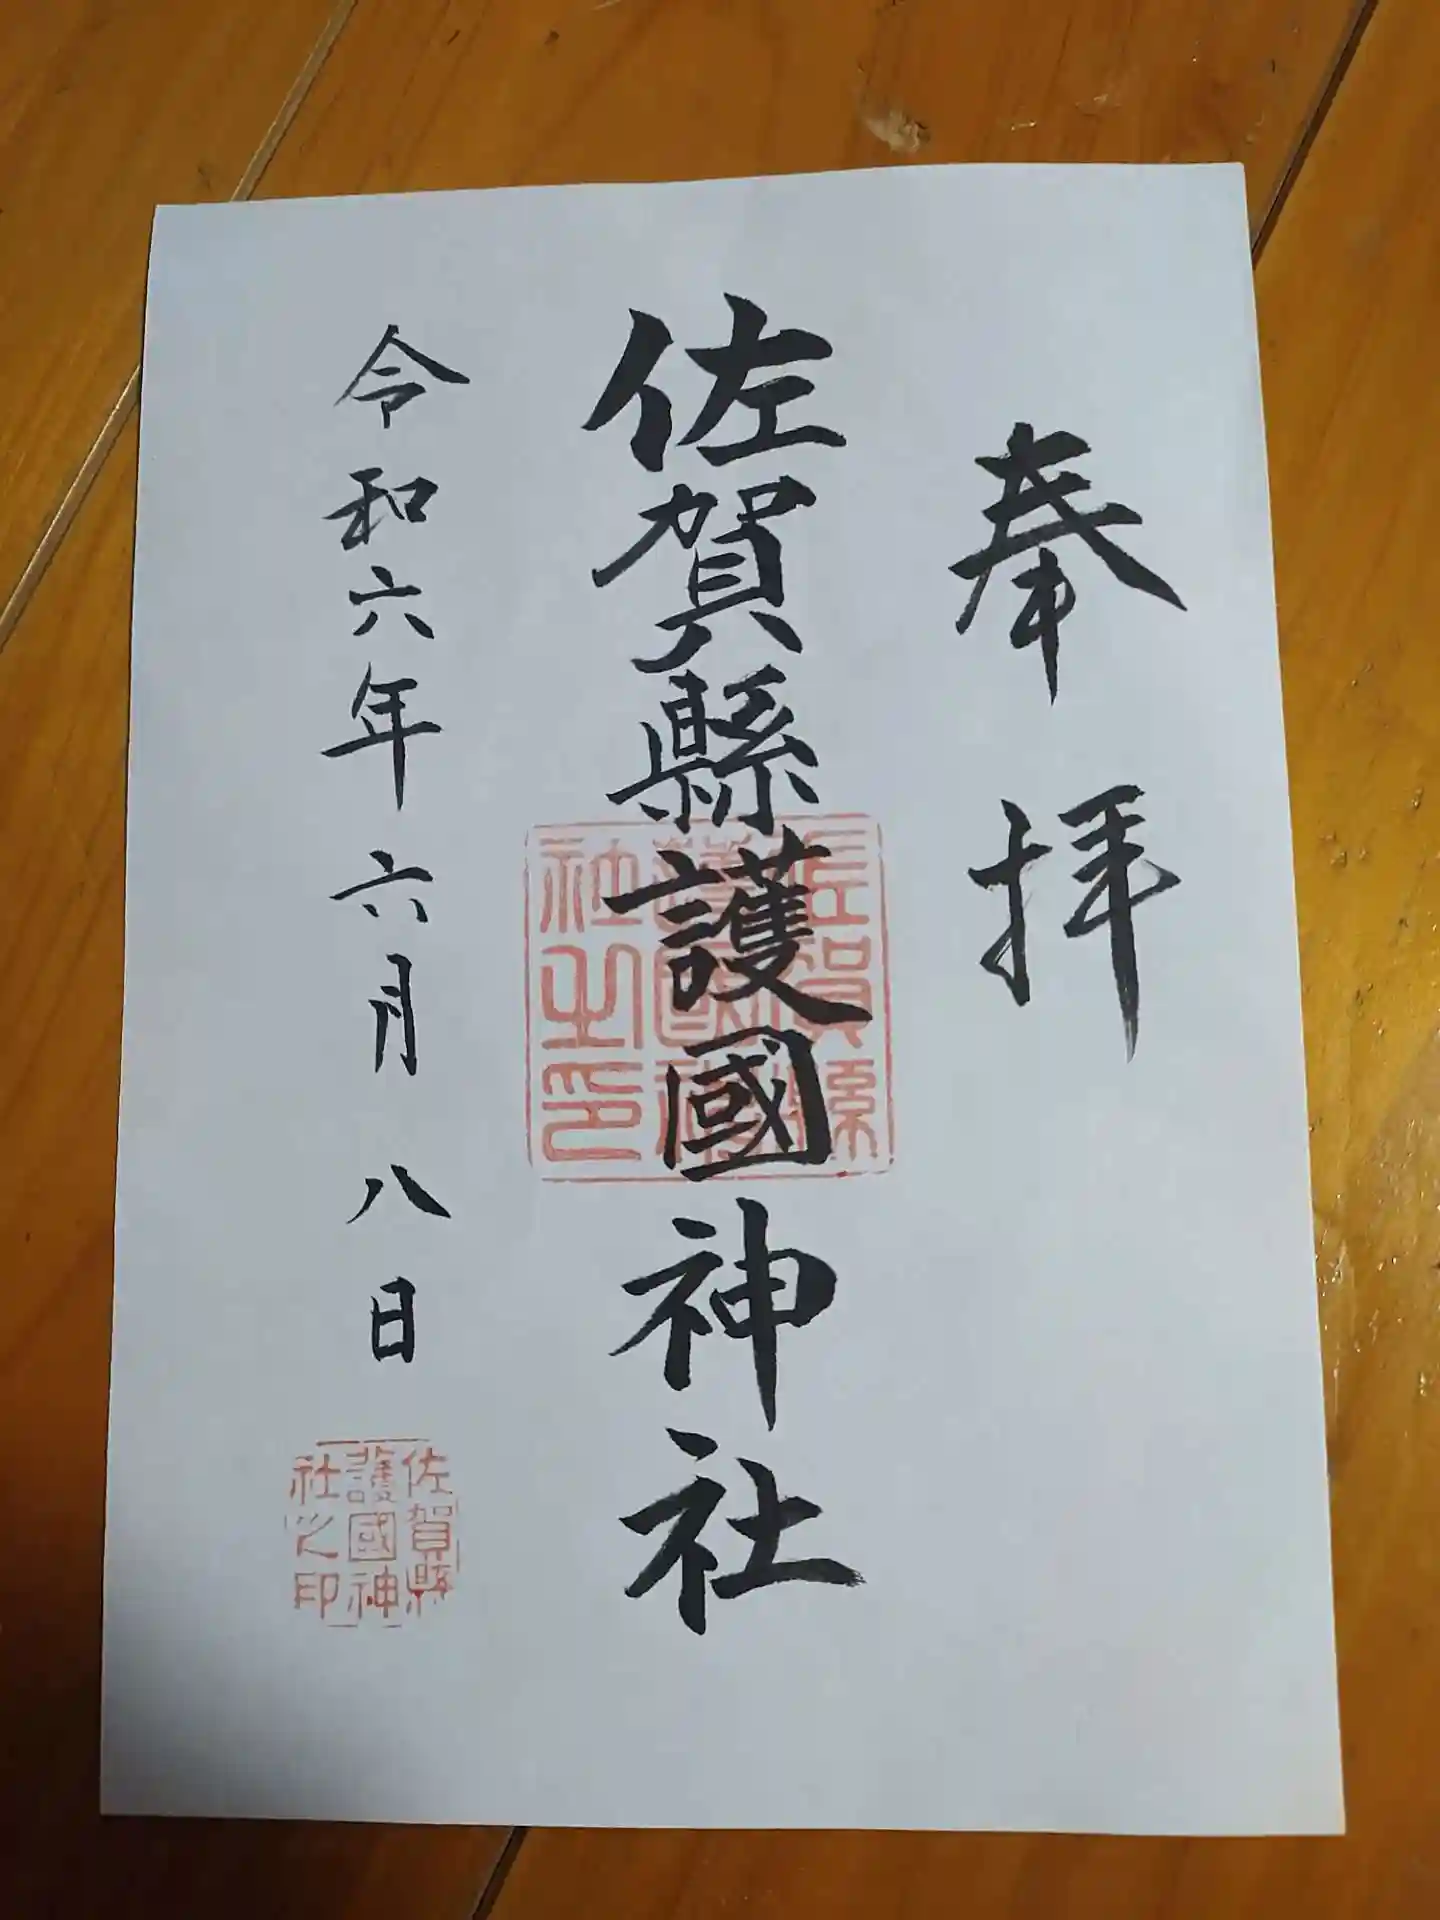 奉拝
佐賀縣護國神社
佐賀縣
護國神
社之印
令和六年六月八日
佐賀縣
護國神
社之印